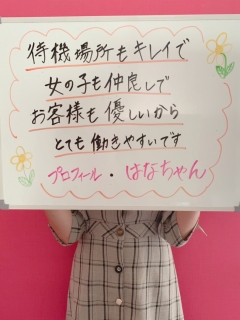 待機場所もキレイで
女の子も仲良しで
お客様も優しいから
とても働きやすいです
プロフィール・はなちゃん